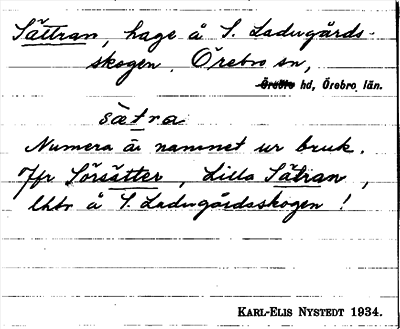 Sättran, hage å S. Ladugårds-
skogen. Örebro sn,
Örebro hd, Örebro län.
sætra
Numera är namnet ur bruk.
Jfr Sörsätter, Lilla Sätran,
lhbr å S. Ladugårdsskogen!
KARL-ELIS NYSTEDT 1934.